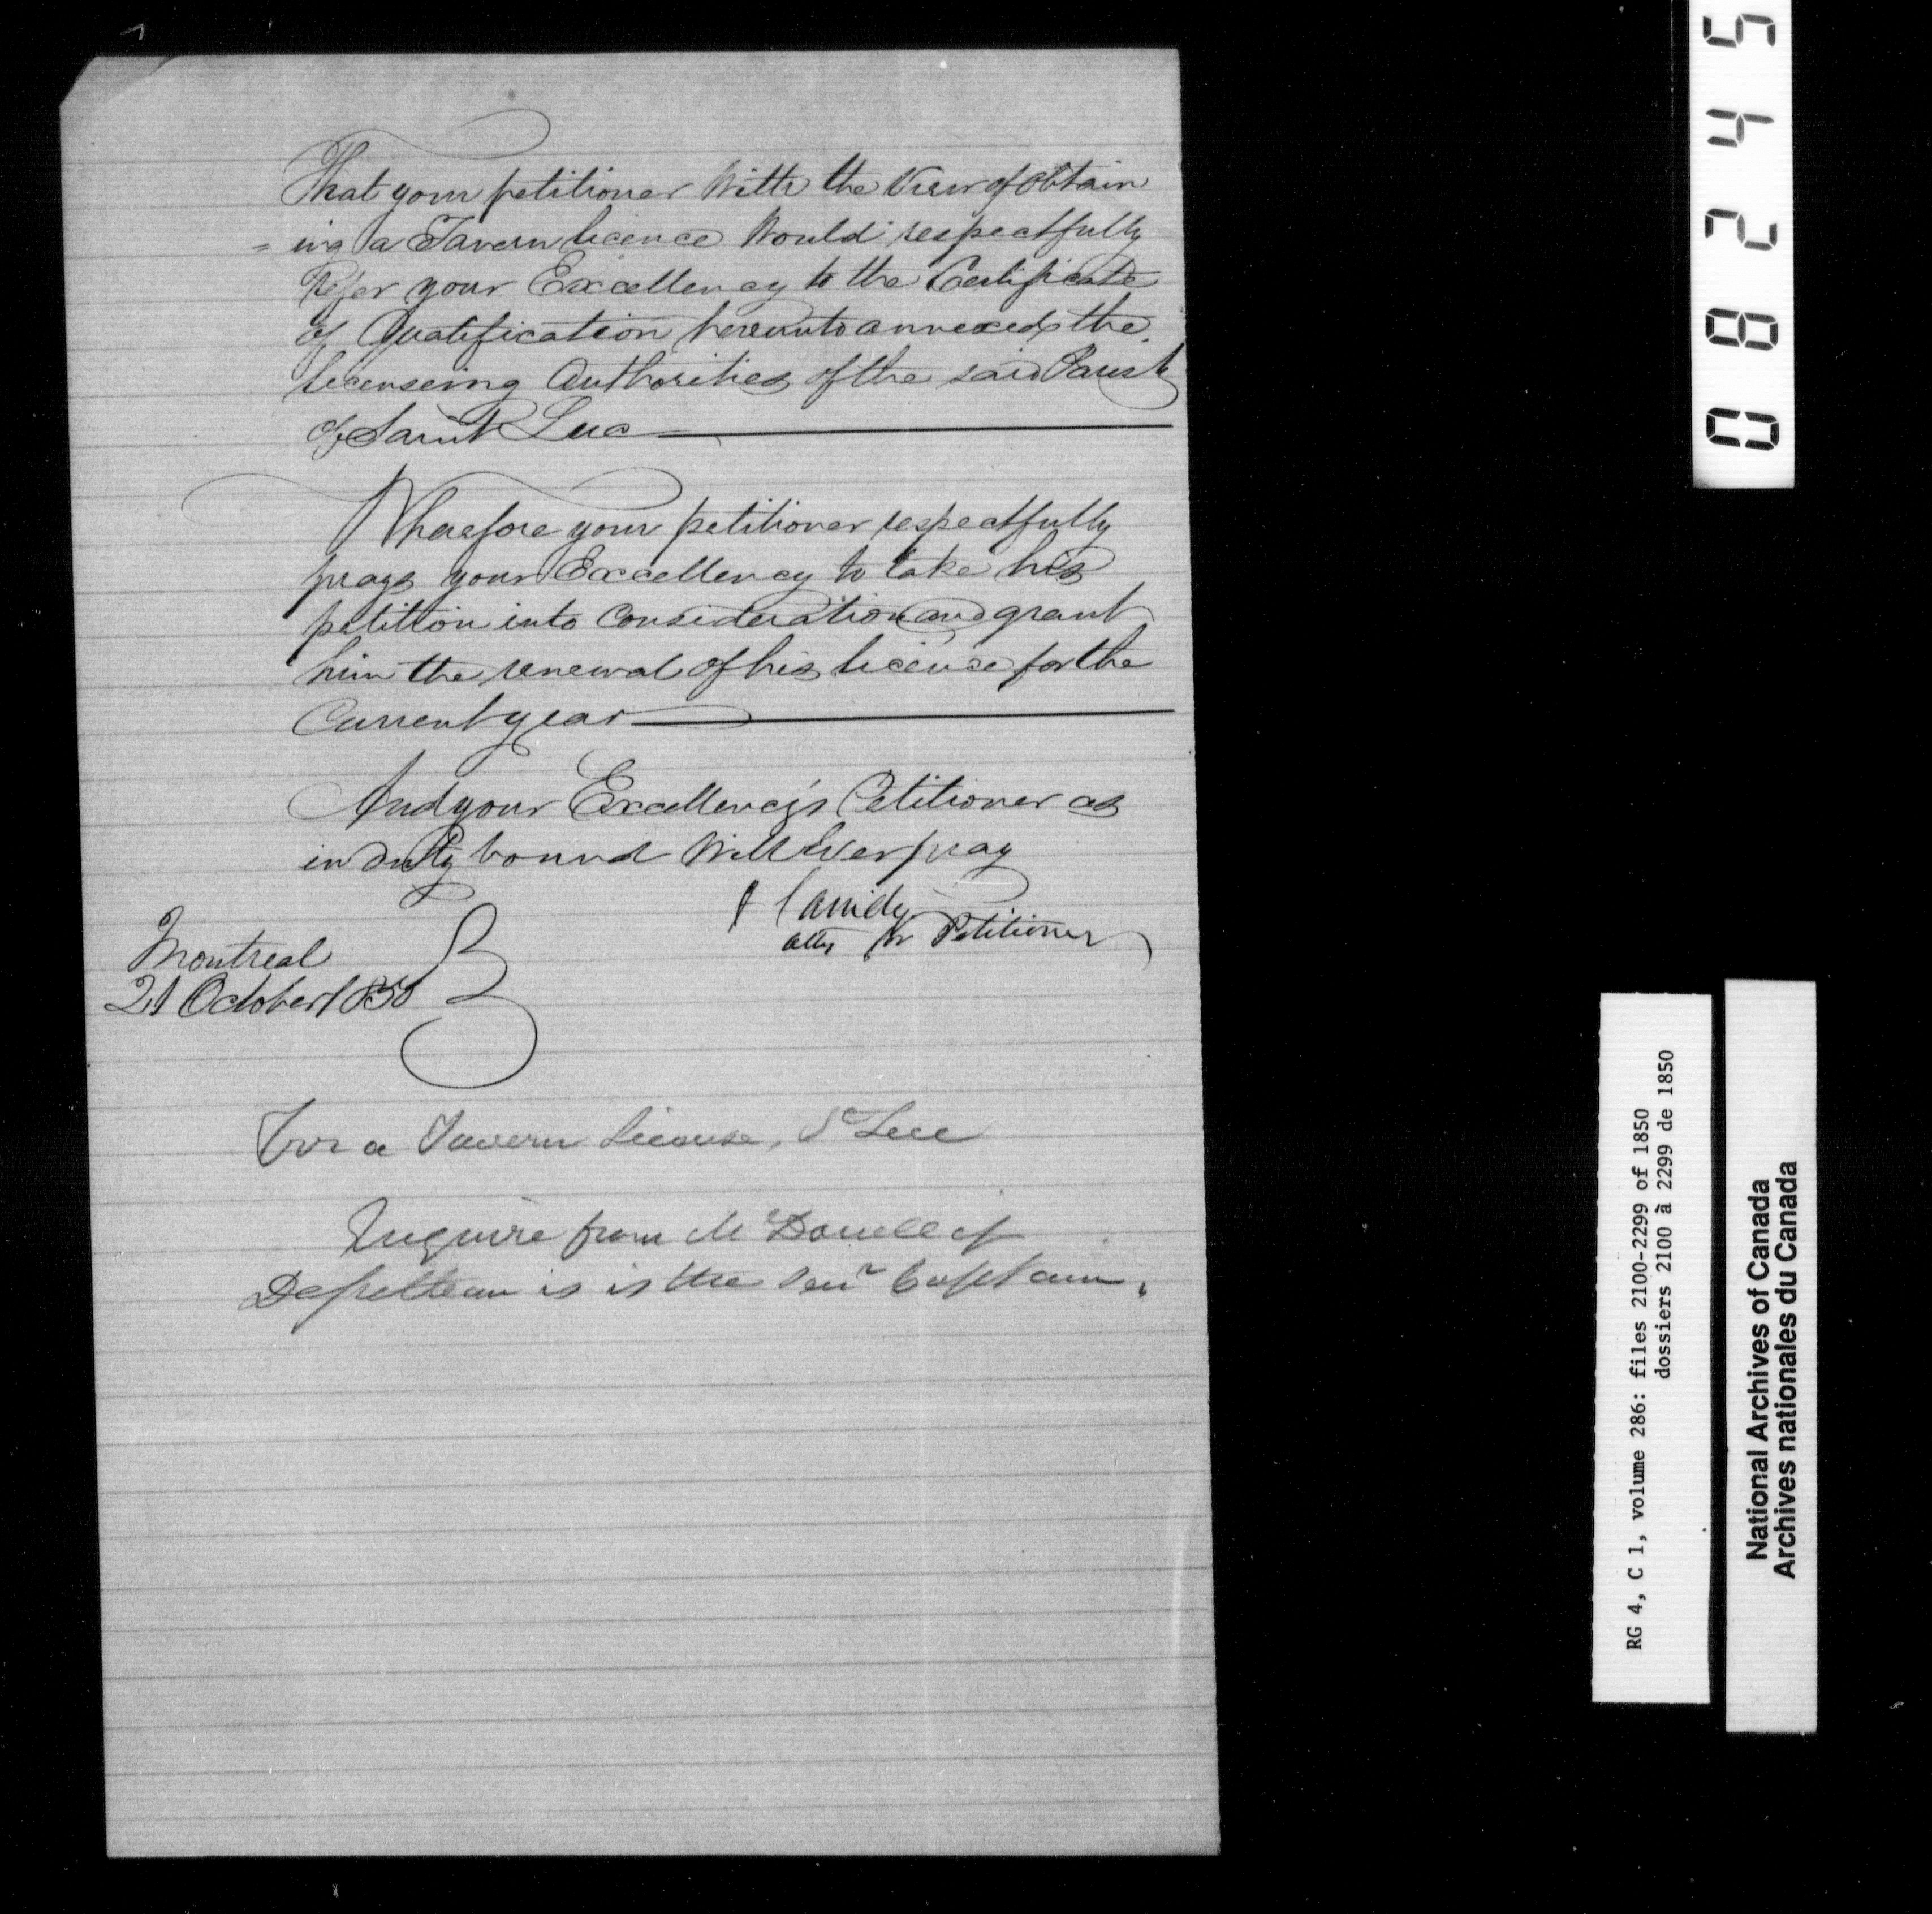 That your petitioner With the View of Obtain
= ing a Tavern licence Would respectfully
Refer your Excellency to the Certificate
of Qualification hereunto annexed, the
licenseing Authorities of the said Parish
of Saint Luc
Wherefore your petitioner respectfully
prays your Excellency to take his
petition into Consideration and grant
him the renewal of his license for the
Current year
And your Excellency's Petitioner as
in duty bound Will Ever pray
Atty for Petitioner
Montreal
21 October 1850
For a Tavern License, St Luc
Inquire from
is is the Senr Captain.
08245
RG 4, C 1, volume 286: files 2100-2299 of 1850
dossiers 2100 à 2299 de 1850
National Archives of Canada
Archives nationales du Canada